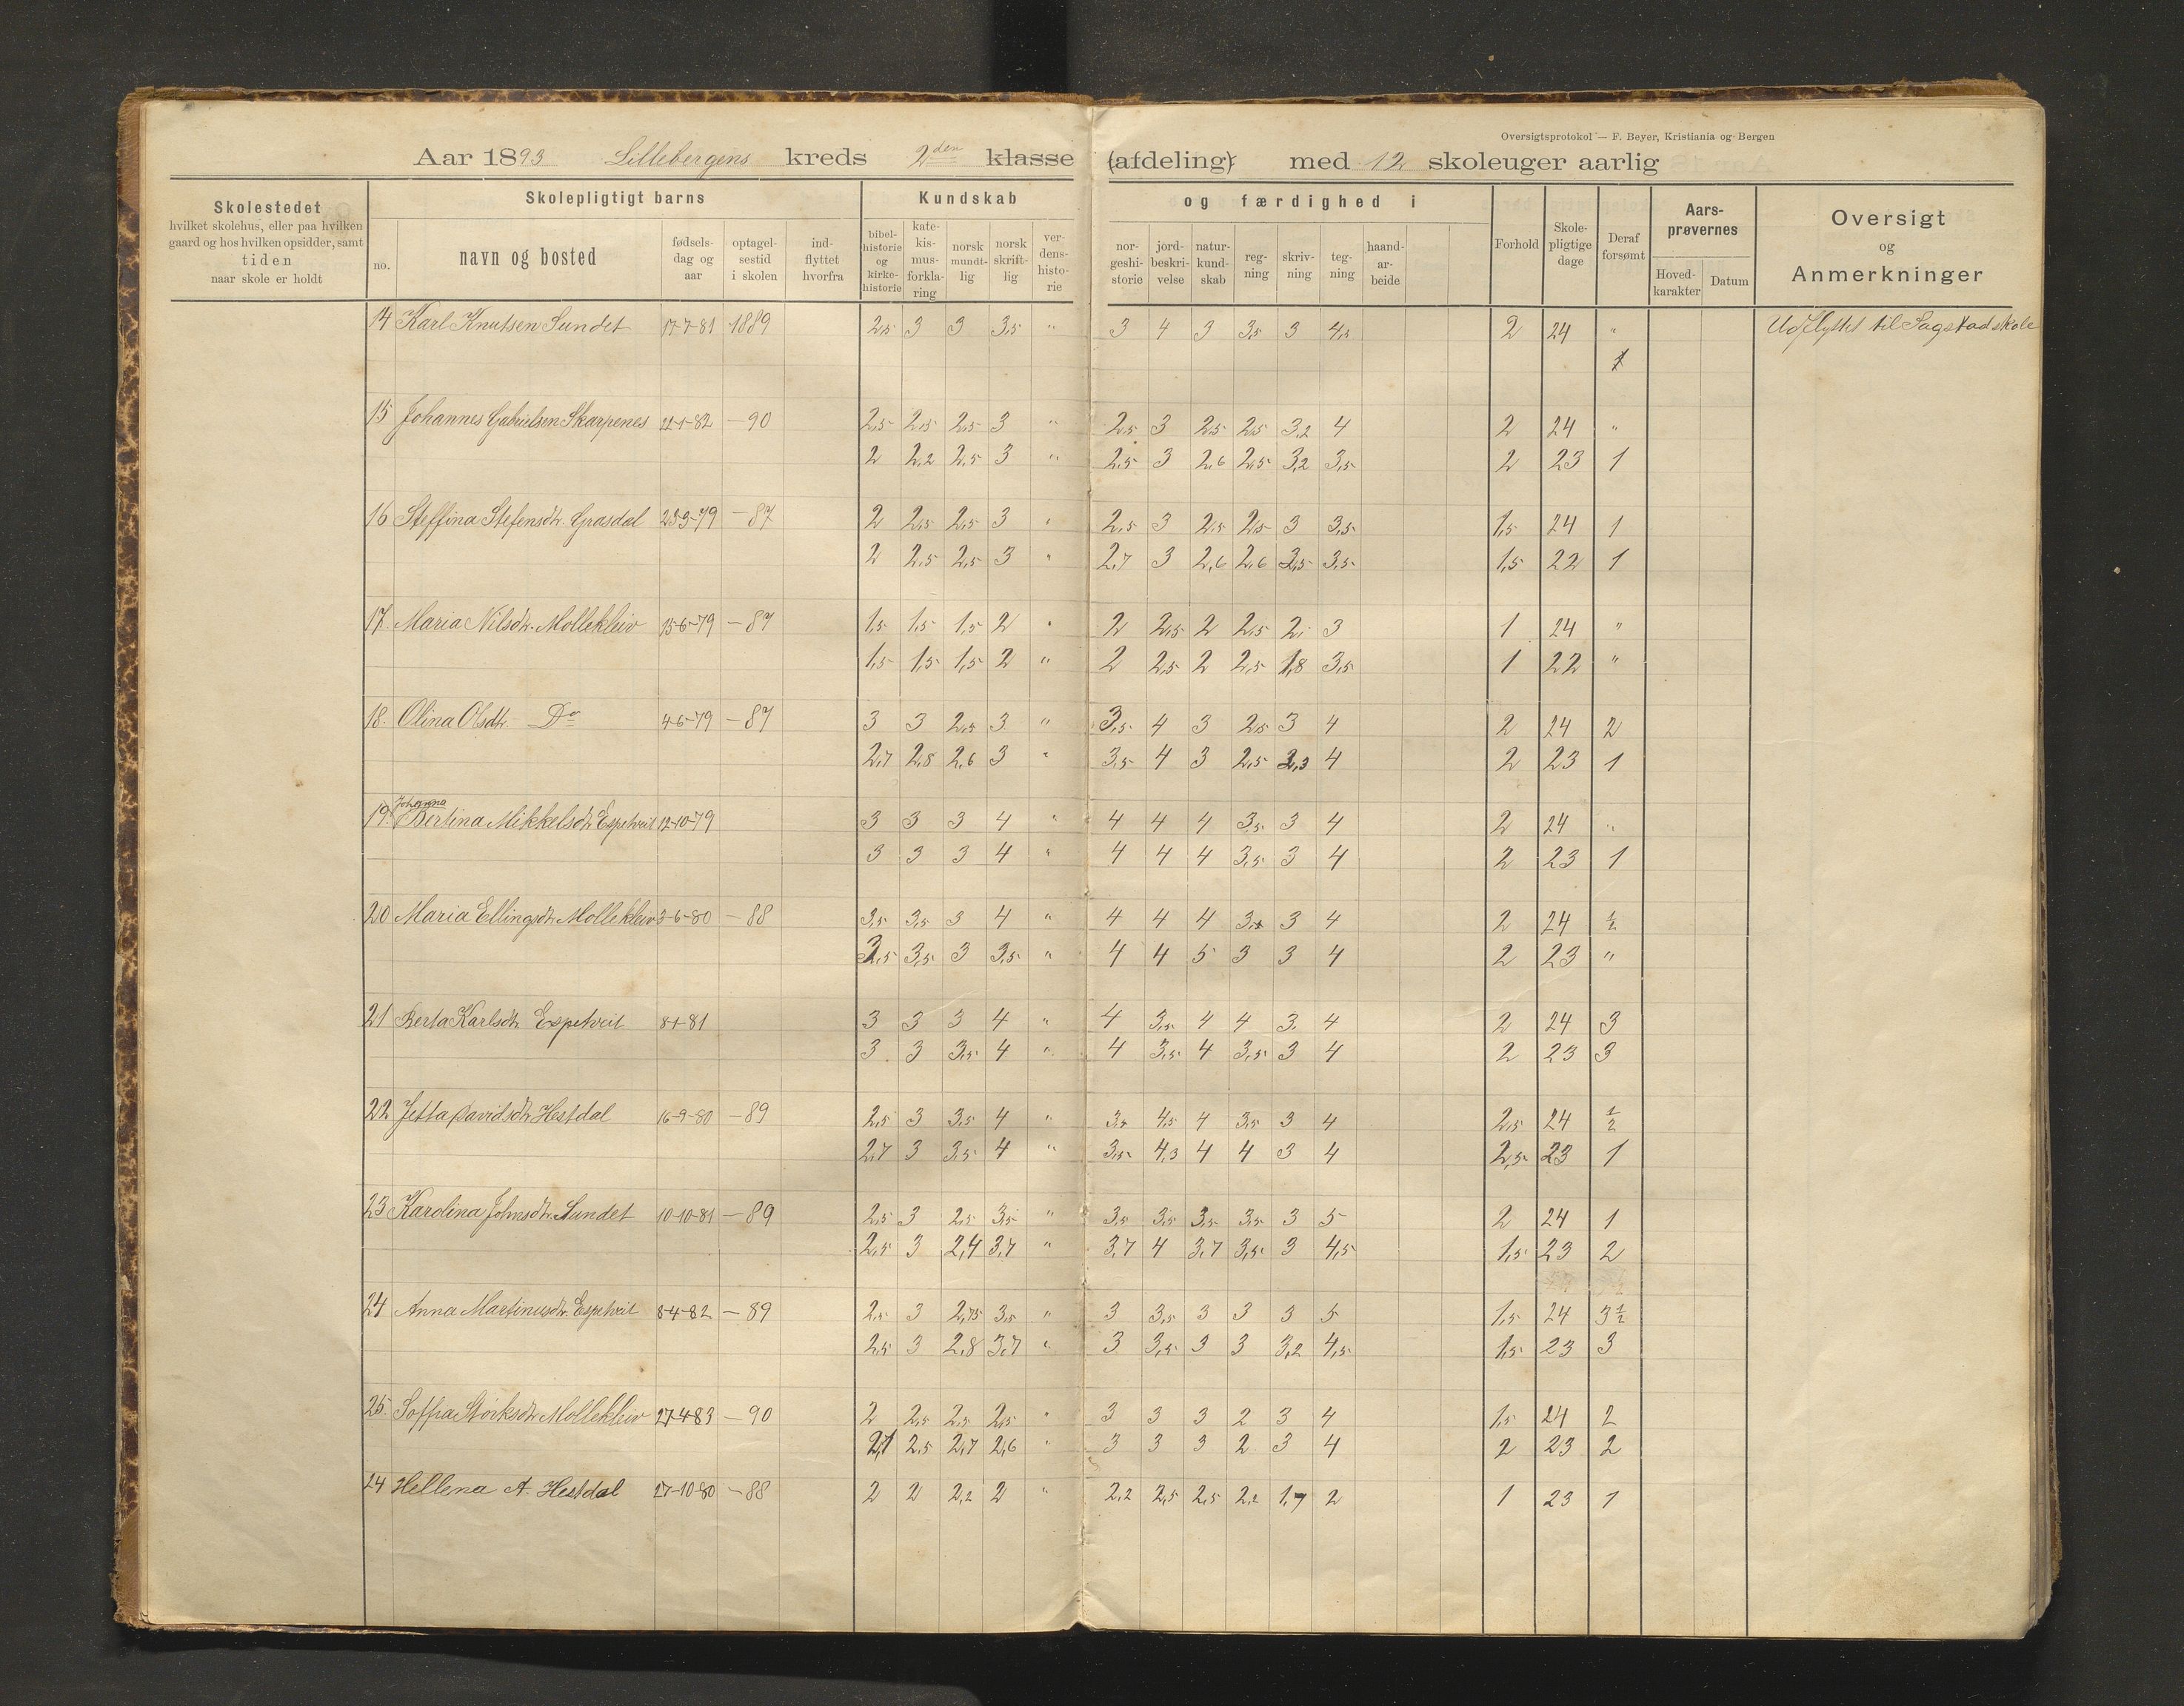 Oversigtsprotokol — F. Beyer, Kristiania og Bergen
Aar 1893 Lillebergens kreds 2den klasse (afdeling) med 12 skoleuger aarlig
Skolestedet
hvilket skolehus, eller paa hvilken
gaard og hos hvilken opsidder, samt
tiden
naar skole er holdt
Skolepligtigt barns
no.
navn og bosted
fødsels-
dag og
aar
optagel-
sestid
i skolen
ind-
flyttet
hvorfra
Kundskab og færdighed i
bibel-
historie
og
kirke-
historie
kate-
kis-
mus-
forkla-
ring
norsk
mundt-
lig
norsk
skrift-
lig
ver-
dens-
histo-
rie
nor-
geshi-
storie
jord-
beskri-
velse
natur-
kund-
skab
reg-
ning
skriv-
ning
teg-
ning
haand-
ar-
beide
Forhold
Skole-
pligtige
dage
Deraf
forsømt
Aars-
prøvernes
Hoved-
karakter
Datum
Oversigt
og
Anmerkninger
14 Karl Knutsen Sundet 17-7-81 1889 2,5 3 3 3,5 " 3 4 3 3,5 3 4,5 2 24 " Udflyttet til Sagstad skole
1
15 Johannes Gabrielsen Skarpenes 22-1-82 -90 2,5 2,5 2,5 3 " 2,5 3 2,5 2,5 3,2 4 2 24 "
2 2,2 2,5 3 " 2,5 3 2,6 2,5 3,2 3,5 2 23 1
16 Steffina Stefensdtr. Grasdal 23-3-79 -87 2 2,5 2,5 3 " 2,5 3 2,5 2,5 3 3,5 1,5 24 1
2 2,5 2,5 3 " 2,7 3 2,6 2,6 3,5 3,5 1,5 22 1
17. Maria Nilsdtr. Mollekleiv 15-6-79 -87 1,5 1,5 1,5 2 " 2 2,5 2 2,5 2 3 1 24 "
1,5 1,5 1,5 2 " 2 2,5 2 2,5 1,8 3,5 1 22 "
18. Olina Olsdtr. Do 4-6-79 -87 3 3 2,5 3 " 3,5 4 3 2,5 3 4 2 24 2
2,7 2,8 2,6 3 " 3,5 4 3 2,5 2,3 4 2 23 1
Johanna
19. Bertina Mikkelsdtr Espetveit 12-10-79 3 3 3 4 " 4 4 4 3,5 3 4 2 24 "
3 3 3 4 " 4 4 4 3,5 3 4 2 23 1
20 Maria Ellingsdtr Mollekleiv 3-6-80 -88 3,5 3,5 3 4 " 4 4 4 3 4 2 24 ½
3,5 3,5 3 3,5 " 4 4 5 3 3 4 2 23 "
21 Berta Karlsdtr Espetveit 8-1-81 3 3 3 4 " 4 3,5 4 4 3 4 2 24 3
3 3 3,5 4 " 4 3,5 4 3,5 3 4 2 23 3
22 Jetta Davidsdtr Hestdal 16-9-80 -89 2,5 3 3,5 4 " 3,5 4,5 4 3,5 3 4 2,5 24 ½
2,7 3 3,5 4 " 3,5 4,3 4 4 3 4 2,5 23 1
23 Karolina Johnsdtr. Sundet 10-10-81 -89 2,5 3 2,5 3,5 " 3,5 3,5 3,5 3,5 3 5 2 24 1
2,5 3 2,4 3,7 " 3,7 4 3,7 3,5 3 4,5 1,5 23 2
24 Anna Martinusdtr. Espetveit 8-4-82 -89 2,5 3 2,75 3,5 " 3 3,5 3 3 3 5 1,5 24 3½
2,5 3 2,8 3,7 " 3 3,5 3 3 3,2 4,5 1,5 23 3
25. Soffia Størksdtr Mollekleiv 27-4-83 -90 2 2,5 2,5 2,5 " 3 3 3 2 3 4 1,5 24 2
2,1 2,5 2,7 2,6 " 3 3 3 2 3 4 2 23 2
24 Hellena A. Hestdal 27-10-80 -88 2 2 2,2 2 " 2,2 2,5 2,5 2,2 1,7 2 1 23 1